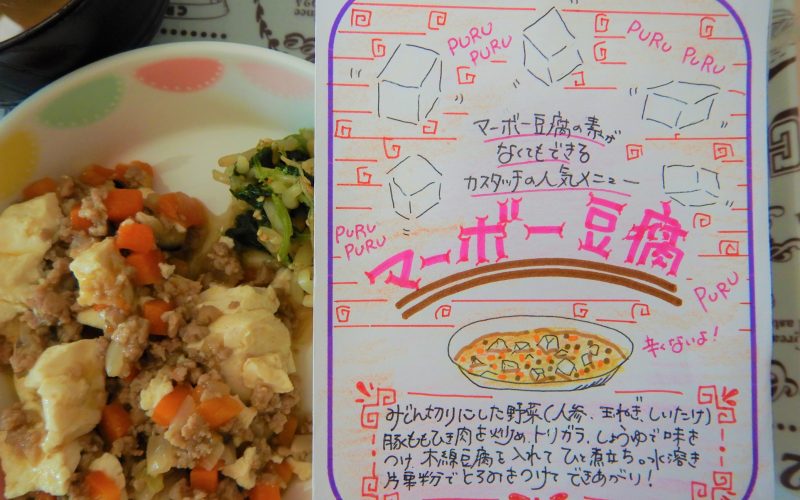 PURU PURU
PURU PURU PURU
マーボー豆腐の素が
なくてもできる
カスタッチの人気メニュー
PURU PURU
マーボー豆腐
PURU
辛くないよ!
みじん切りにした野菜(人参、玉ねぎ、しいたけ)
豚ももひき肉を炒め、トリガラ、しょうゆで味を
つけ、木綿豆腐を入れてひと煮立ち。水溶き
片栗粉でとろみをつけてできあがり!